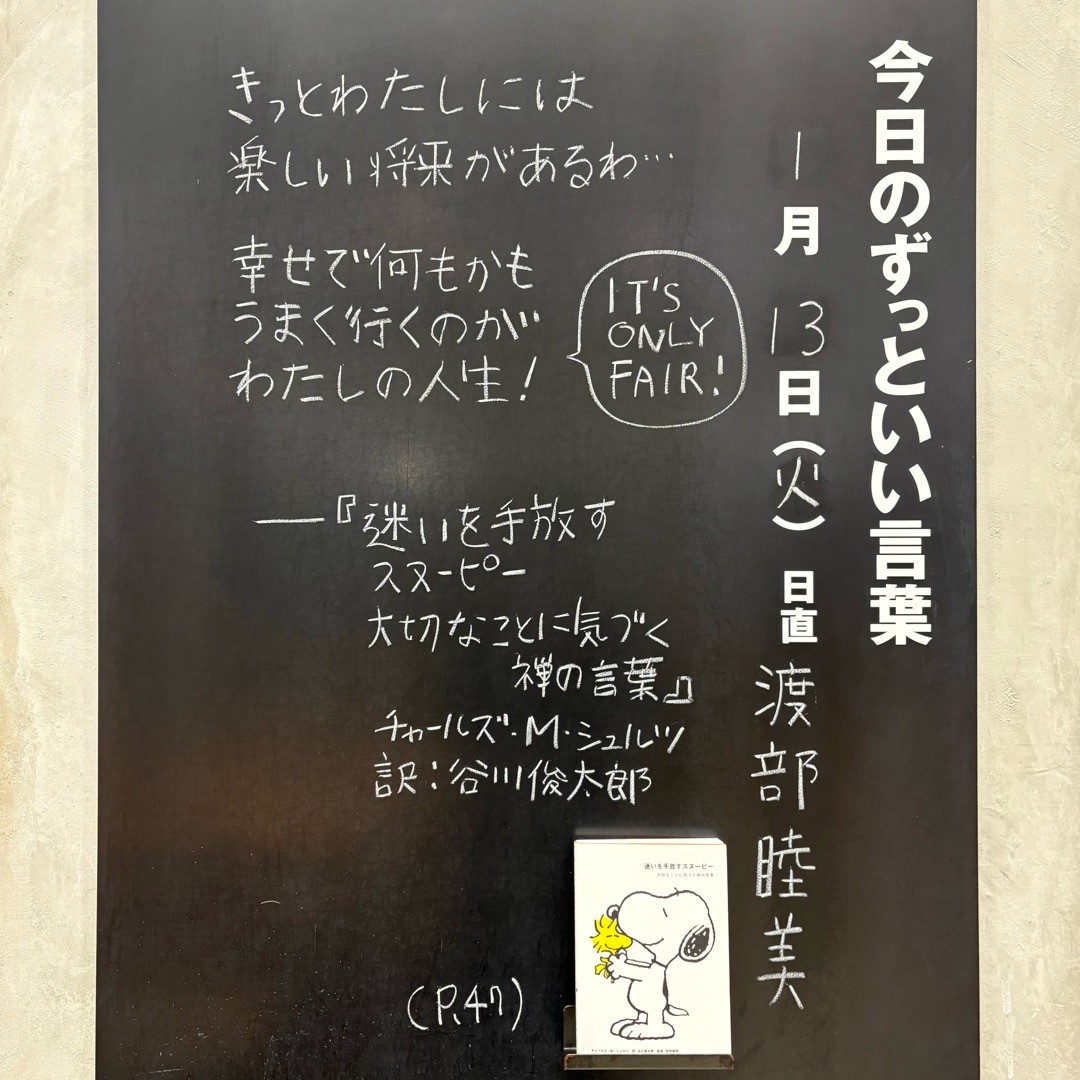 今日のずっといい言葉
1月13日(火) 日直 渡部睦美
きっとわたしには
楽しい将来があるわ…
幸せで何もかも
うまく行くのが
わたしの人生!
IT'S
ONLY
FAIR!
―『迷いを手放す
スヌーピー
大切なことに気づく
禅の言葉』
チャールズ・M・シュルツ
訳:谷川俊太郎
(P.47)
迷いを手放すスヌーピー
大切なことに気づく禅の言葉